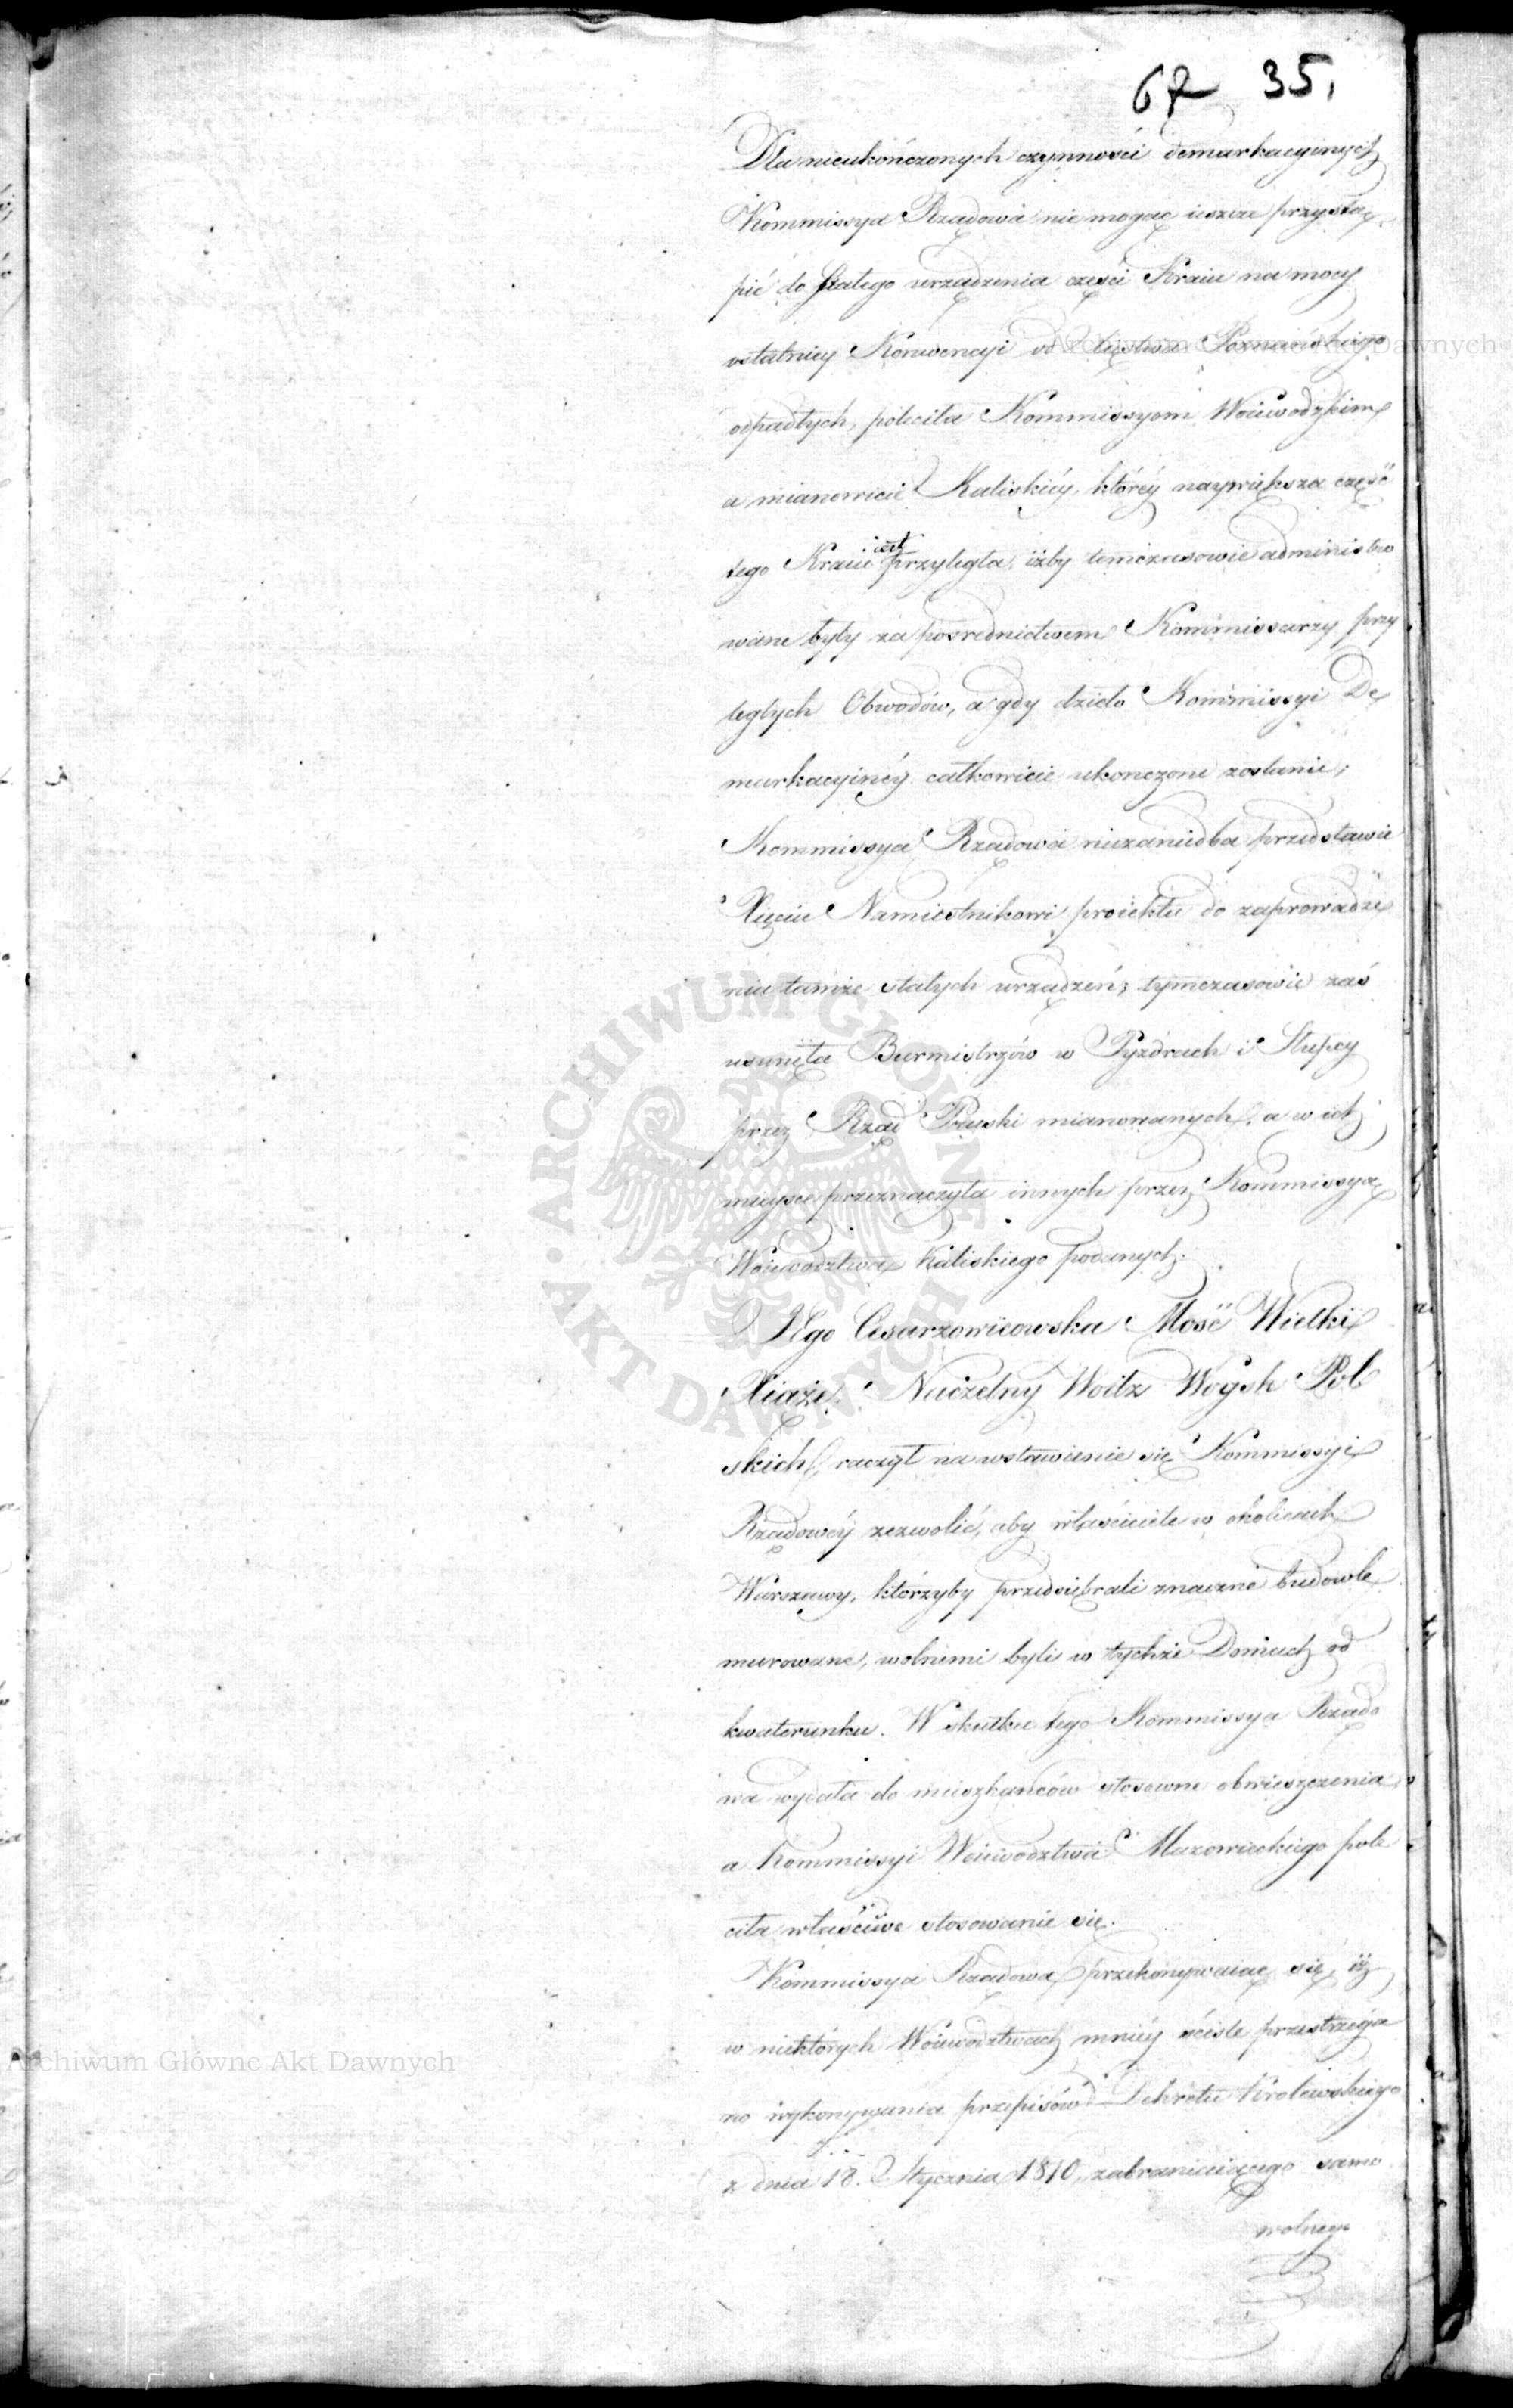 67 35,
Dla nieukończonych czynności demarkacyinych
Kommissya Rządowa nie mogąc ieszcze przystą-
pić do stałego urządzenia części Kraiu na mocy
ostatniey Konwencyi od Xięstwa Poznańskiego
odpadłych, poleciła Kommissyom Woiewódzkim
a mianowicie Kaliskiéy, któréy naywiększa część
tego Kraiu iest przyległa, iżby tymczasowie administro
wane były za pośrednictwem Kommissarzy przy
ległych Obwodów, a gdy dzieło Kommissyi De
markacyinéy całkowicie ukonczone zostanie;
Kommissya Rządowa niezaniedba przedstawić
Xięciu Namiestnikowi proiektu do zaprowadze
nia tamże stałych urządzeń; tymczasowie zaś
usunęła Burmistrzów w Pyzdrach i Słupcy
przez Rząd Pruski mianowanych, a w ich
mieysce przeznaczyła innych przez Kommissyą
Woiewodztwa Kaliskiego podanych.
JEgo Cesarzowicowska Mość Wielki
Xiąże, Naczelny Wódz Woysk Pol
skich, raczył na wstawienie się Kommissyi
Rządowéy zezwolić, aby właściciele w okolicach
Warszawy, którzyby przedsiębrali znaczne budowle
murowane, wolnemi byli w tychże Domach od
kwaterunku. W skutku tego Kommissya Rządo
wa wydała do mieszkańców stosowne obwieszczenia,
a Kommissyi Woiewodztwa Mazowieckiego pole
ciła właściwe stosowanie się.
Kommissya Rządowa przekonywaiąc się, iż
w niektórych Woiewodztwach mniéy ściśle przestrzega
no wykonywania przepisów Dekretu Królewskiego
z dnia 18. Stycznia 1810, zabraniaiącego samo
wolnego
Archiwum Główne Akt Dawnych
Archiwum Główne Akt Dawnych
ARCHIWUM GŁÓWNE AKT DAWNYCH